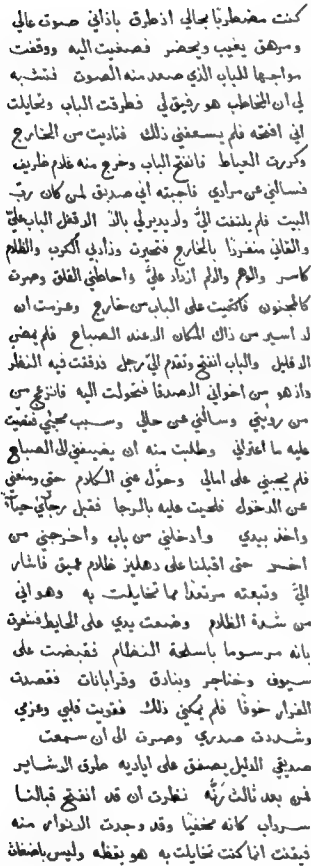 كنت مضطربًا بحالي اذ طرق باذاني صوت عالي
ومرهق يغيب ويحضر فصغيت اليه ووقفت
مواجها للباب الذي صعد منه الصوت فتشبه
لي ان المخاطب هو رفيق لي فطرقت الباب وتحايلت
اني افتحه فلم يسعفني ذلك فناديت من الخارج
وكررت العياط فانفتح الباب وخرج منه غلام ظريف
فسالني عن مرادي فاجبته اني صديق لمن كان رب
البيت فلم يلتفت اليّ ولا يدير لي بالاً الا وقفل الباب عليّ
والقاني منفردًا بالخارج فتحيرت وزاد بي الكرب والظلام
كاسر والوهم والالم ازداد عليّ واحاطني القلق وصرت
كالمجنون فاتكيت على الباب من خارج وعزمت ان
لا اسير من ذاك المكان الا عند الصباح فلم يمض
الا قليل والباب انفتح وتقدم اليّ رجل فدققت فيه النظر
واذ هو من اخواني الاصدقا فتحولت اليه فانزعج من
من رؤيتي وسالني عن حالي وسبب مجيئي فقصيت
عليه ما اعتراني وطلبت منه ان يضيفني الى الصباح
فلم يجبني على امالي وحوّل عني الكلام حتى ومنعني
عن الدخول فلحيت عليه بالرجا فقبل رجائي
واخذ بيدي وادخلني من باب واخرجني من
اخر حتى اقبلنا على دهليز ظلام عميق فاشار
اليّ وتبعته مرتعدًا مما تخايلت به وهو اني
من شدة الظلام وضعت يدي على الحايط فشعرت
بانه مرسوما باسلحة النظام فقبضت على
سيوف وخناجر وبنادق وقرابانات فقصدت
الفرار خوفًا فلم يمكني ذلك فقويت قلبي وعزمي
وشددت صدري وصبرت الى ان سمعت
صديقي الدليل يصفق على اياديه طرق الاشاير
فمن بعد ثالث رنّه نظرت ان قد انفتح قبالنا
سرداب كانه مخفيًا وقد وجدت الانوار منه
فيقنت ان ما كنت تخايلت به هو يقظه وليس باضغاث